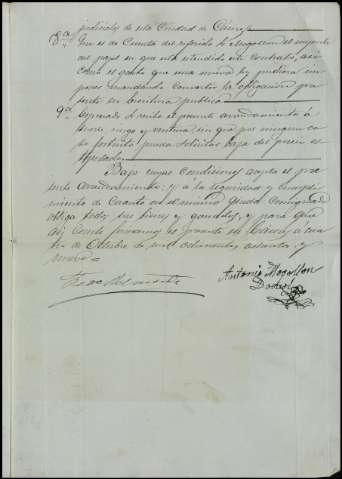 judiciales de esta Ciudad de Cáceres
8ª Que es de Cuenta del referido Sr. Mogollon el importe
del papel en que vá estendido este contrato, así
como el gasto que una misma ley pudiera im
poner mandando convertir la obligacion pre
sente en Escritura publica
9ª y el presente arrendamiento á
suerte riesgo y ventura, sin que por ninguna ca
so fortuito pueda solicitar baja del precio es
tipulado
Bajo cuyas Condiciones acepta el pre
sente arrendamiento; y á la seguridad y cumpli
miento de Cuanto en el mismo queda consignado
obliga todos sus bienes y ganados, y para que
así conste firmamos el presente en Cáceres á cua
tro de Octubre de mil ochocientos setenta y
nueve=
Antonio Mogollon